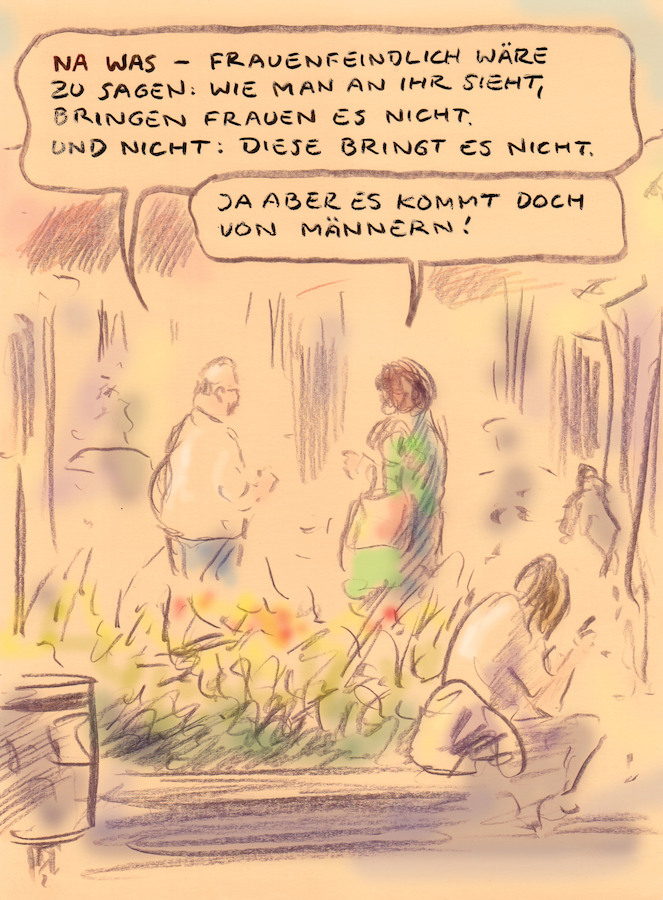 NA WAS – FRAUENFEINDLICH WÄRE
ZU SAGEN: WIE MAN AN IHR SIEHT,
BRINGEN FRAUEN ES NICHT.
UND NICHT: DIESE BRINGT ES NICHT.
JA ABER ES KOMMT DOCH
VON MÄNNERN!